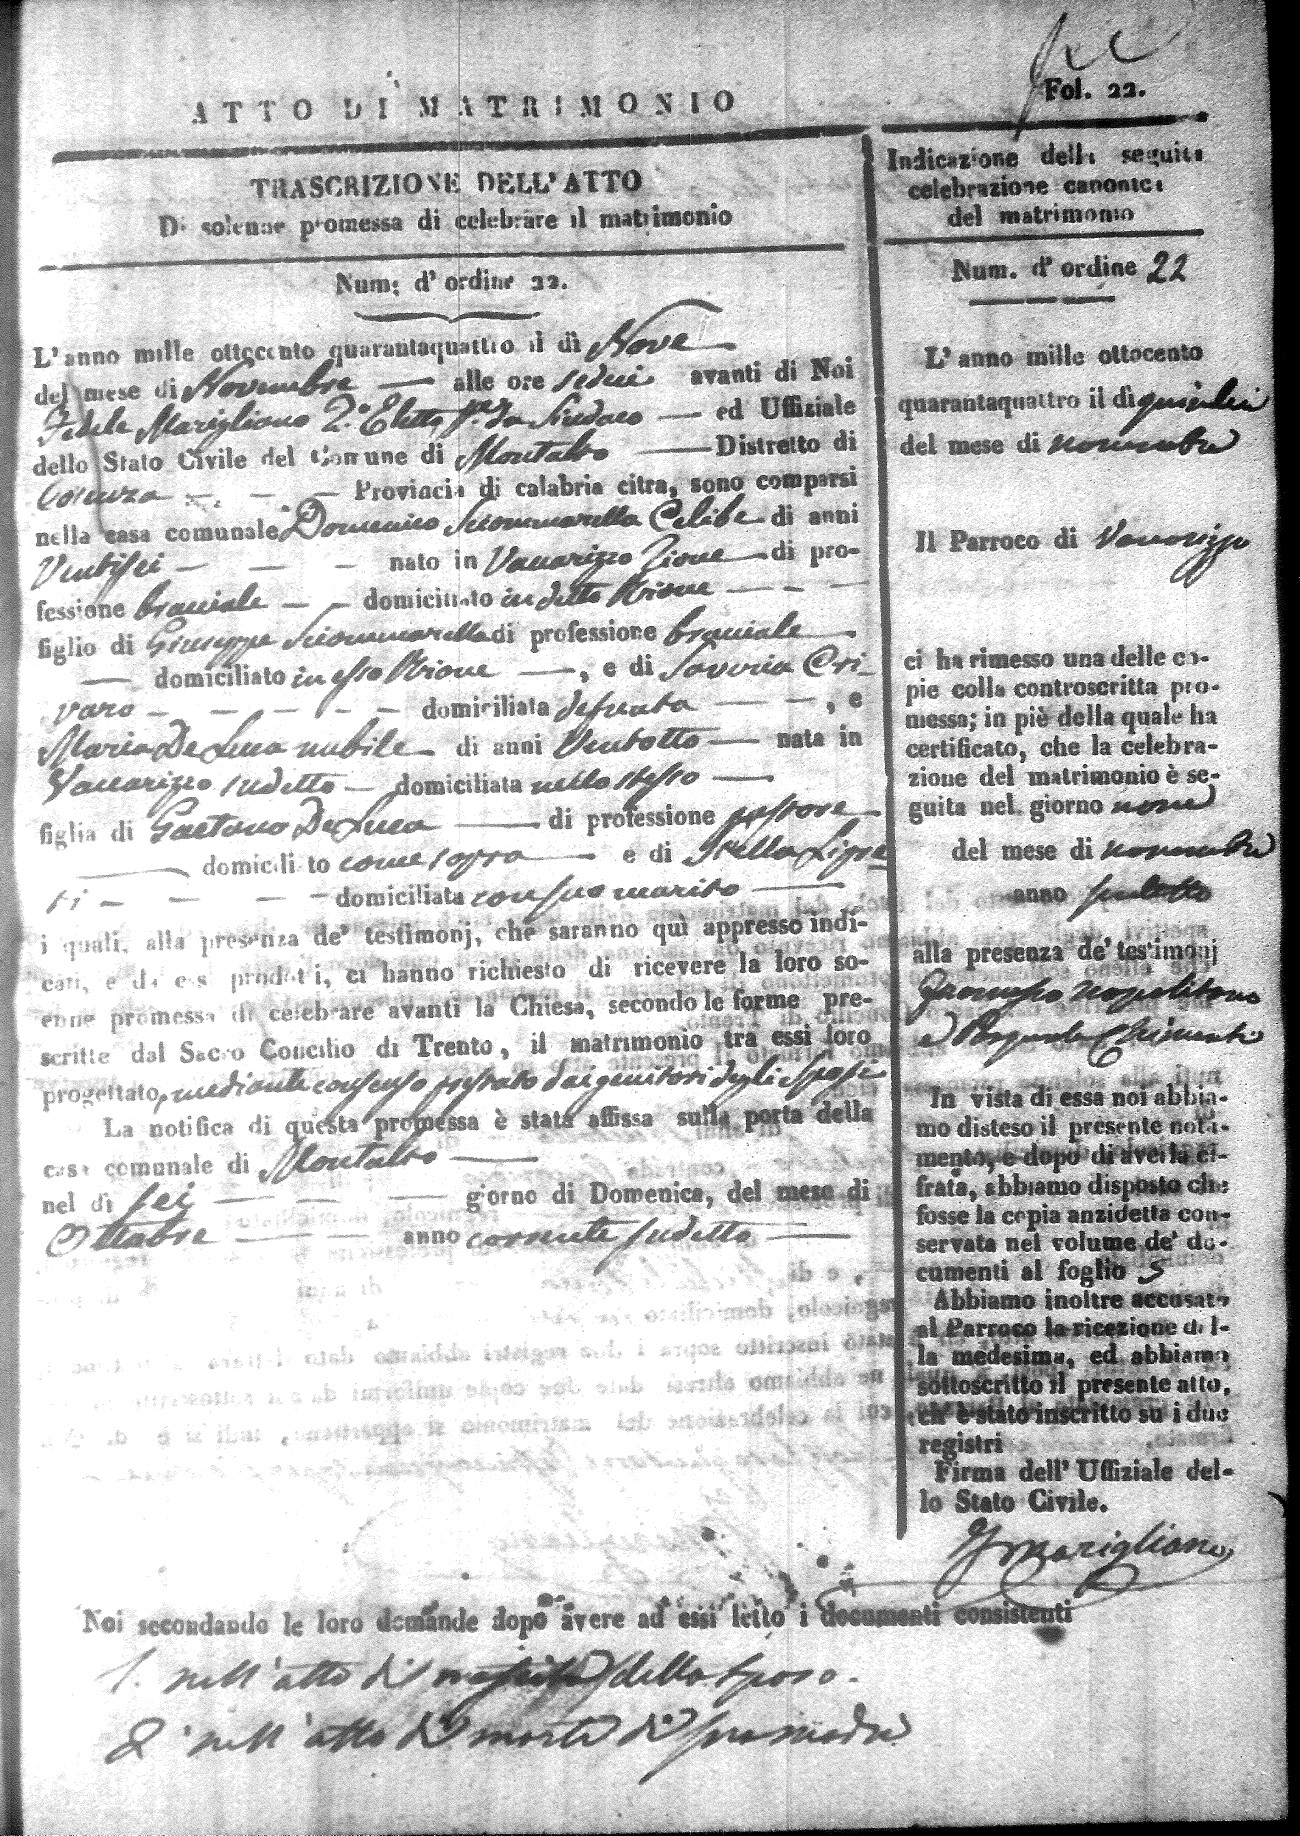 Fol. 22.
ATTO DI MATRIMONIO
TRASCRIZIONE DELL'ATTO
Di solenne promessa di celebrare il matrimonio
Num: d'ordine 22.
L'anno mille ottocento quarantaquattro il dì Nove
del mese di Novembre — alle ore sedici avanti di Noi
Fedele Marigliano 2.° Eletto p. da Sindaco — ed Uffiziale
dello Stato Civile del Comune di Montalto — Distretto di
Cosenza — — — Provincia di calabria citra, sono comparsi
nella casa comunale Domenico Scommarella Celibe di anni
Ventisei — — — nato in Vaccarizzo Rione — di pro-
fessione bracciale — — domiciliato in detto Rione — — —
figlio di Giuseppe Scommarella di professione bracciale
— domiciliato in esso Rione —, e di Saveria Cri-
varo — — — — — domiciliata defunta — —, e
Maria De Luca nubile — di anni Ventotto — nata in
Vaccarizzo sudetto — domiciliata nello stesso —
figlia di Gaetano De Luca — di professione pastore —
— domicili to come sopra — e di Stella Ligra
ti — — — — domiciliata con suo marito —
i quali, alla presenza de' testimonj, che saranno qui appresso indi-
cati, e da essi prodotti, ci hanno richiesto di ricevere la loro so-
enne promessa di celebrare avanti la Chiesa, secondo le forme pre-
scritte dal Sacro Concilio di Trento, il matrimonio tra essi loro
progettato, mediante consenso prestato dai genitori degli sposi
La notifica di questa promessa è stata affissa sulla porta della
casa comunale di Montalto —
nel dì sei — — — giorno di Domenica, del mese di
Ottobre — — — anno corrente sudetto —
Indicazione della seguita
celebrazione canonica
del matrimonio
Num. d'ordine 22
L'anno mille ottocento
quarantaquattro il dì quindici
del mese di novembre
Il Parroco di Vaccarizzo
ci ha rimesso una delle co-
pie colla controscritta pro-
messa; in piè della quale ha
certificato, che la celebra-
zione del matrimonio è se-
guita nel giorno nove
del mese di novembre
anno sudetto
alla presenza de' testimonj
Napolitano
e Pasquale Chimenti
In vista di essa noi abbia-
mo disteso il presente nota-
mento, e dopo di averla ci-
frata, abbiamo disposto che
fosse la copia anzidetta con-
servata nel volume de' do-
cumenti al foglio 5
Abbiamo inoltre accusato
al Parroco la ricezione del-
la medesima, ed abbiamo
sottoscritto il presente atto,
ch' è stato inscritto su i due
registri
Firma dell' Uffiziale del-
lo Stato Civile.
F Marigliano
Noi secondando le loro demande dopo avere ad essi letto i documenti consistenti
1. nell'atto di nascita dello sposo.
2. nell'atto di morte di sua madre